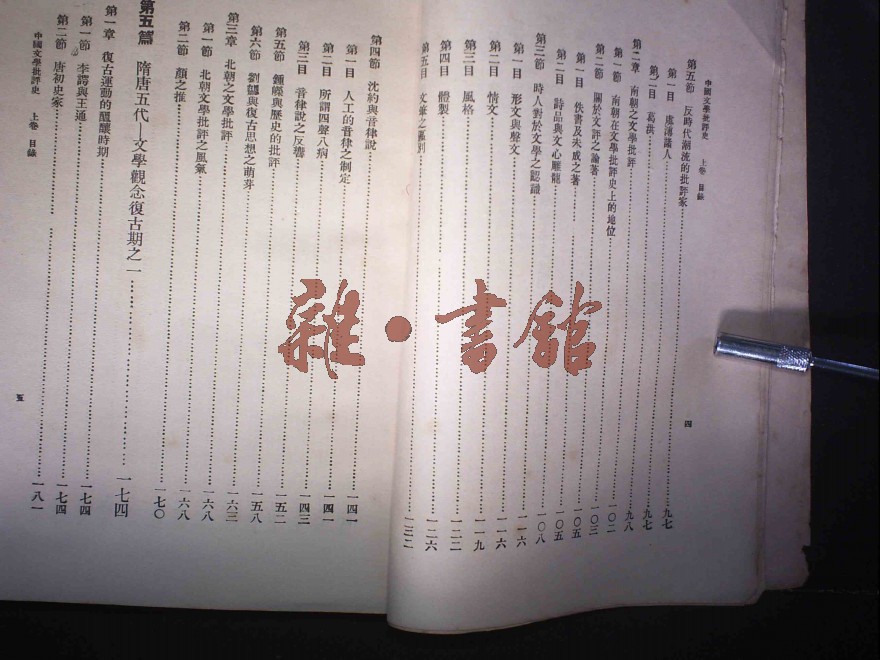 中國文學批評史 上卷 目錄
第五節 反時代潮流的批評家 九七
第一目 虞溥諸人 九七
第二目 葛洪 九七
第二章 南朝之文學批評 九八
第一節 南朝在文學批評史上的地位 一〇二
第二節 關於文評之論著 一〇三
第一目 佚書及未成之著 一〇五
第二目 詩品與文心雕龍 一〇五
第三節 時人對於文學之認識 一〇八
第一目 形文與聲文 一一六
第二目 情文 一一六
第三目 風格 一一九
第四目 體製 一二二
第五目 文筆之區別 一二六
一三二
四
第四節 沈約與音律說
第一目 人工的音律之制定 一四一
第二目 所謂四聲八病 一四一
第三目 音律說之反響 一四三
第五節 鍾嶸與歷史的批評 一五二
第六節 劉勰與復古思想之萌芽 一五八
第三章 北朝之文學批評 一六三
第一節 北朝文學批評之風氣 一六八
第二節 顏之推 一六八
一七〇
第五篇 隋唐五代—文學觀念復古期之一 一七四
第一章 復古運動的醞釀時期
第一節 李諤與王通 一七四
第二節 唐初史家 一七四
一八一
中國文學批評史 上卷 目錄
五
雜·書館